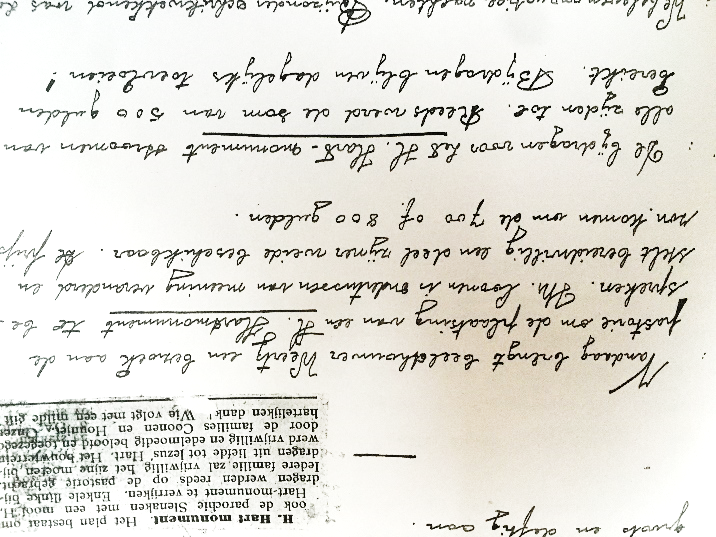 groots en deftig aan.
H. Hart monument. Het plan bestaat om
ook de parochie Slenaken met een mooi H.
Hart-monument te verrijken. Enkele flinke bij-
dragen werden reeds op de pastorie gebracht.
Iedere familie zal vrijwillig het zijne moeten bij-
dragen uit liefde tot Jezus' Hart. Het bouwterrein
werd vrijwillig en edelmoedig beloofd en toegezegd
door de families Coonen en Onzen
hartelijken dank! Wie volgt met een milde gift
Vandaag brengt beeldhouwer Weerts een bezoek aan de
pastorie om de plaatsing van een H. Hartmonument te be-
spreken. Coonen is ondertussen van meening veranderd en
stelt bereidwillig een deel zijner weide beschikbaar. De prijs
komen om de 700 of 800 gulden.
: De bijdragen voor het H. Hart-monument stroomen van
alle zijden toe. Reeds werd de som van 500 gulden
bereikt. Bijdragen blijven dagelijks toevloeien!
Bijzonder schrikwekkend was de